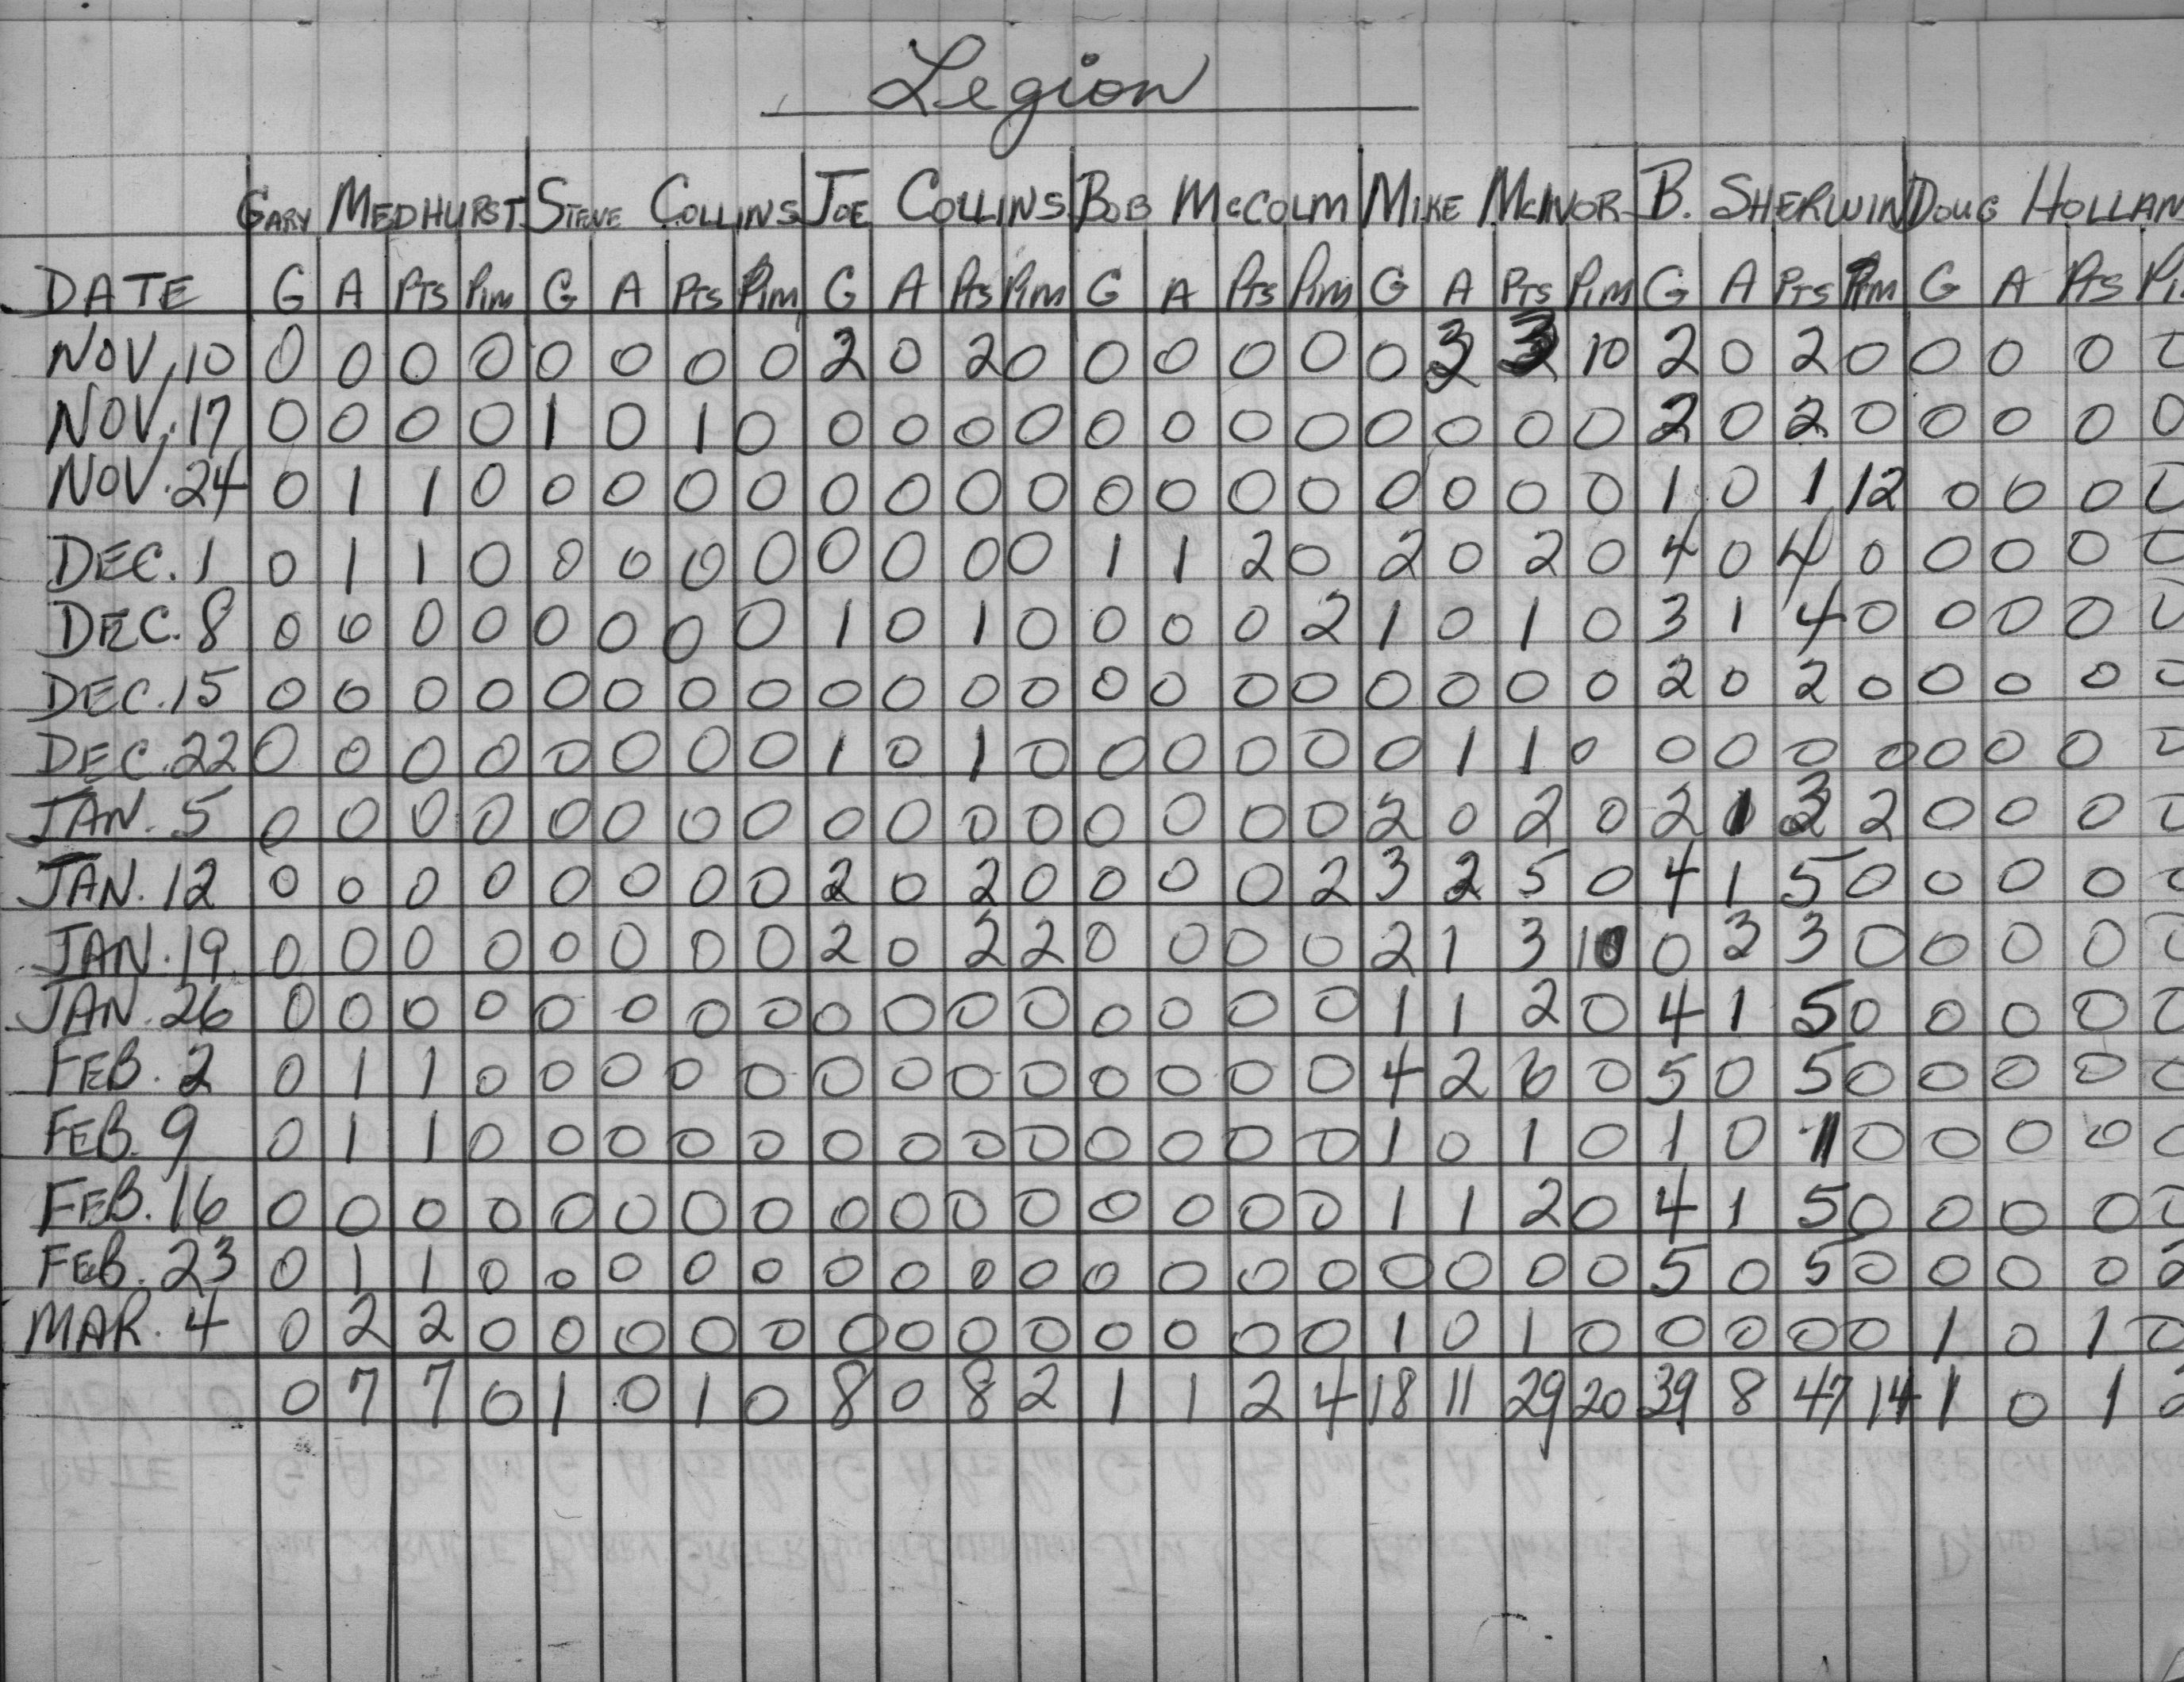 Legion
GARY MEDHURST STEVE COLLINS JOE COLLINS BOB McCOLM MIKE McIVOR B. SHERWIN DOUG HOLLAN
DATE G A PTS Pim G A PTS Pim G A Pts Pim G A Pts Pim G A PTS Pim G A PTS Pim G A Pts Pi
NOV. 10 0 0 0 0 0 0 0 0 2 0 2 0 0 0 0 0 0 3 3 10 2 0 2 0 0 0 0 0
NOV. 17 0 0 0 0 1 0 1 0 0 0 0 0 0 0 0 0 0 0 0 0 2 0 2 0 0 0 0 0
NOV. 24 0 1 1 0 0 0 0 0 0 0 0 0 0 0 0 0 0 0 0 0 1 0 1 12 0 0 0 0
DEC. 1 0 1 1 0 0 0 0 0 0 0 0 0 1 1 2 0 2 0 2 0 4 0 4 0 0 0 0 0
DEC. 8 0 0 0 0 0 0 0 0 1 0 1 0 0 0 0 2 1 0 1 0 3 1 4 0 0 0 0 0
DEC. 15 0 0 0 0 0 0 0 0 0 0 0 0 0 0 0 0 0 0 0 0 2 0 2 0 0 0 0 0
DEC. 22 0 0 0 0 0 0 0 0 1 0 1 0 0 0 0 0 0 1 1 0 0 0 0 0 0 0 0 0
JAN. 5 0 0 0 0 0 0 0 0 0 0 0 0 0 0 0 0 2 0 2 0 2 1 3 2 0 0 0 0
JAN. 12 0 0 0 0 0 0 0 0 2 0 2 0 0 0 0 2 3 2 5 0 4 1 5 0 0 0 0 0
JAN. 19 0 0 0 0 0 0 0 0 2 0 2 2 0 0 0 0 2 1 3 10 0 3 3 0 0 0 0 0
JAN. 26 0 0 0 0 0 0 0 0 0 0 0 0 0 0 0 0 1 1 2 0 4 1 5 0 0 0 0 0
FEB. 2 0 1 1 0 0 0 0 0 0 0 0 0 0 0 0 0 4 2 6 0 5 0 5 0 0 0 0 0
FEB. 9 0 1 1 0 0 0 0 0 0 0 0 0 0 0 0 0 1 0 1 0 1 0 1 0 0 0 0 0
FEB. 16 0 0 0 0 0 0 0 0 0 0 0 0 0 0 0 0 1 1 2 0 4 1 5 0 0 0 0 0
FEB. 23 0 1 1 0 0 0 0 0 0 0 0 0 0 0 0 0 0 0 0 0 5 0 5 0 0 0 0 2
MAR. 4 0 2 2 0 0 0 0 0 0 0 0 0 0 0 0 0 1 0 1 0 0 0 0 0 1 0 1 0
0 7 7 0 1 0 1 0 8 0 8 2 1 1 2 4 18 11 29 20 39 8 47 14 1 0 1 2